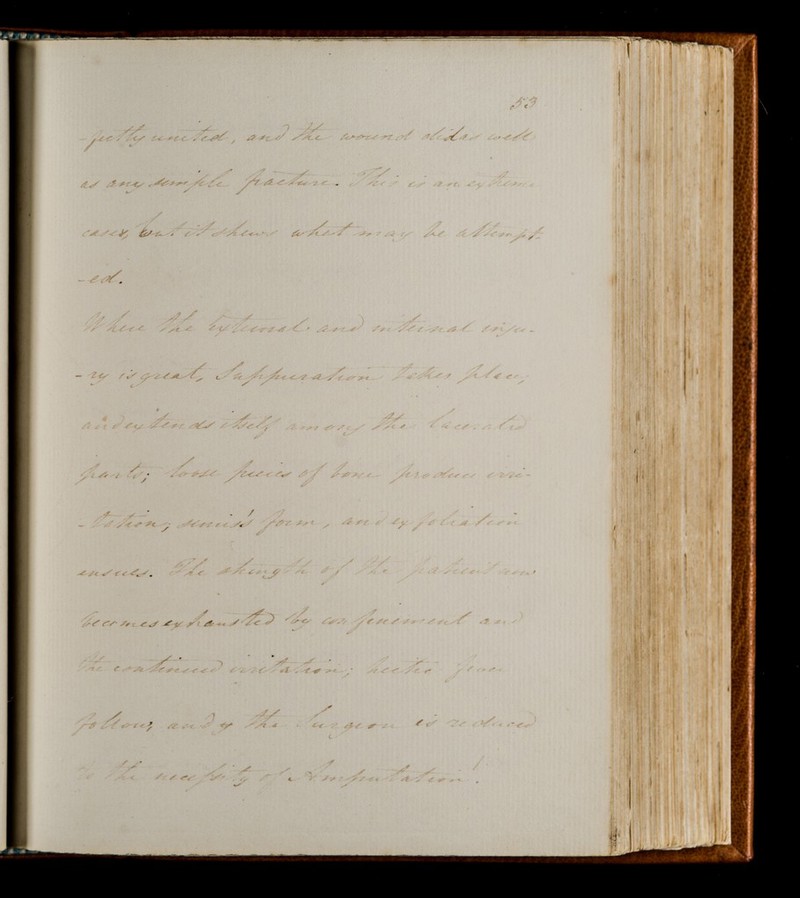 53
-fectly united, and the wound did as well
as any simple fracture. This is an extreme
cases, but it shews what may be attempt-
-ed.
Where the external and internal inju-
-ry is great, Suppuration takes place,
and extends itself among the lacerated
parts; loose pieces of bone produce irri-
-tation, sinus's form, and exfoliation
ensues. The strength of the patient now
becomes exhausted by confinement and
the continued irritation; hectic fever
follows, and the Surgeon is reduced
to the necessity of Amputation.